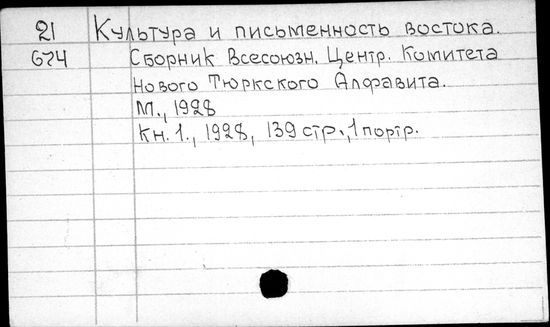 21 Культура и письменность востока.
674 Сборник Всесоюзн. Центр. Комитета
Нового Тюркского Алфавита.
М., 1928
Кн. 1., 1928, 139 стр., 1 портр.